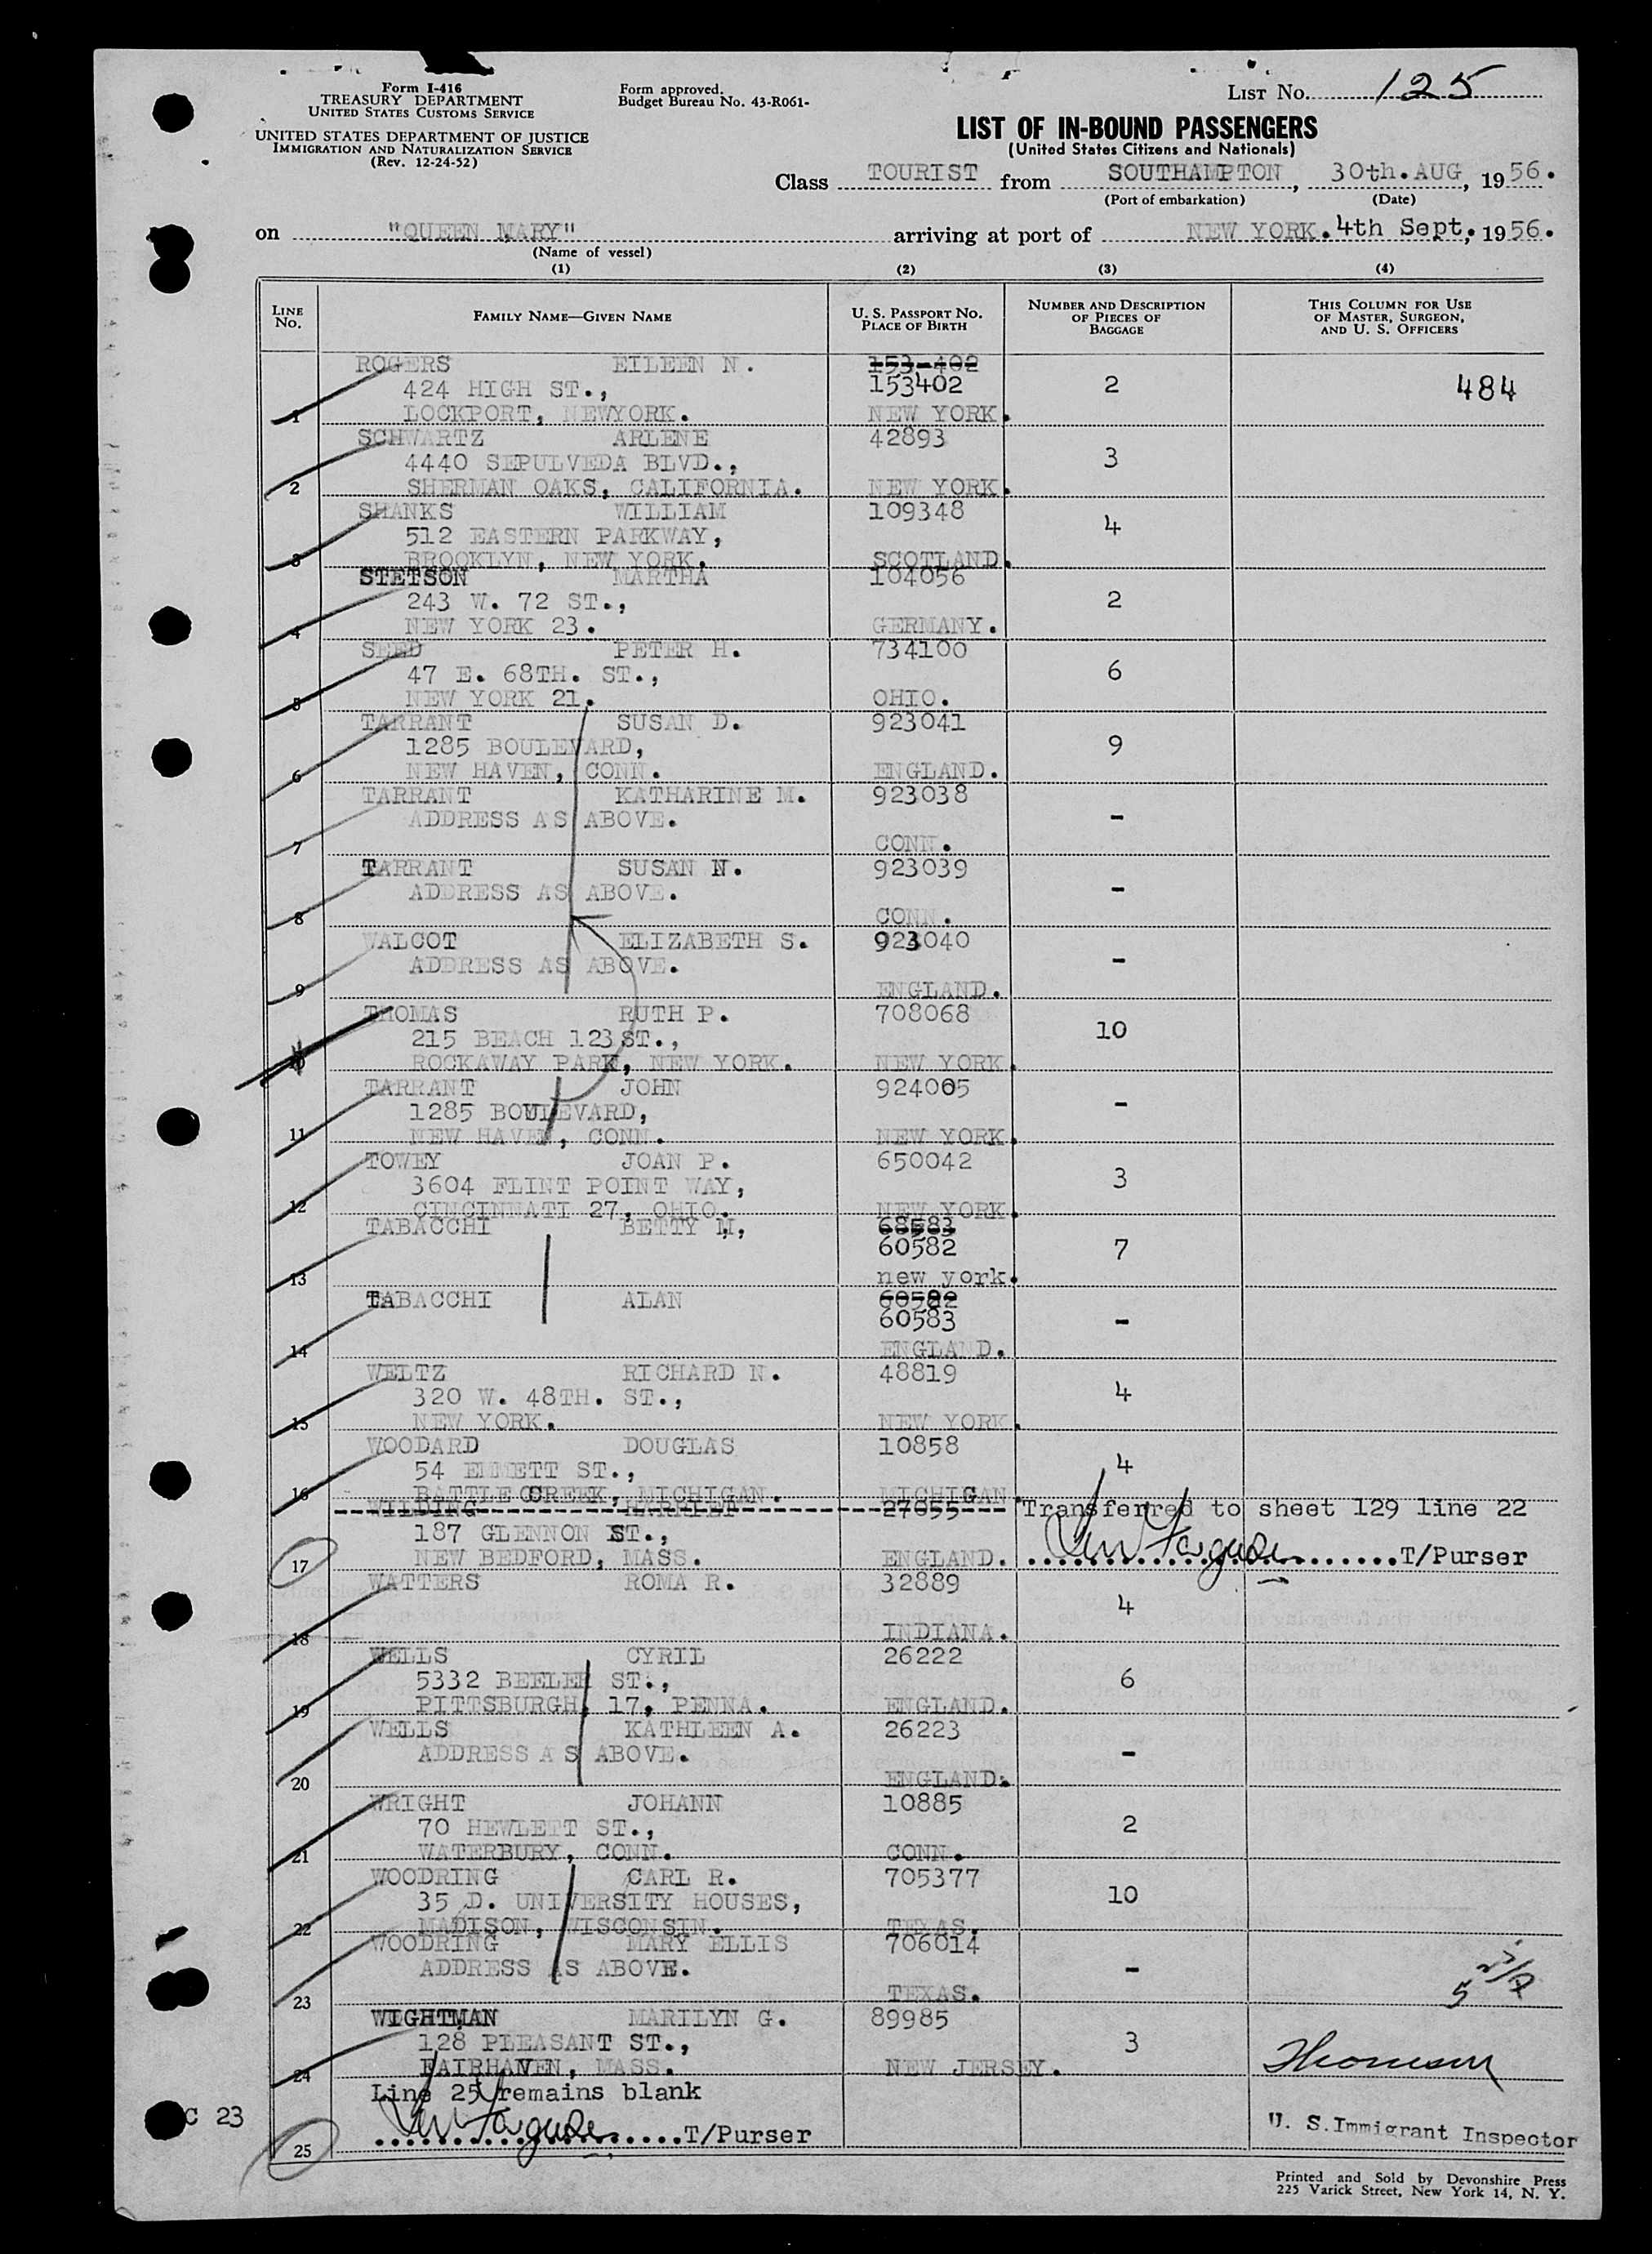 Form I-416
TREASURY DEPARTMENT
UNITED STATES CUSTOMS SERVICE
UNITED STATES DEPARTMENT OF JUSTICE
IMMIGRATION AND NATURALIZATION SERVICE
(Rev. 12-24-52)
Form approved.
Budget Bureau No. 43-R061-
LIST NO. 125
LIST OF IN-BOUND PASSENGERS
(United States Citizens and Nationals)
Class TOURIST from SOUTHAMPTON, 30th.AUG, 1956.
(Port of embarkation) (Date)
on "QUEEN MARY" arriving at port of NEW YORK. 4th Sept. 1956.
(Name of vessel)
(1) (2) (3) (4)
LINE NO. FAMILY NAME—GIVEN NAME U. S. PASSPORT NO. PLACE OF BIRTH NUMBER AND DESCRIPTION OF PIECES OF BAGGAGE THIS COLUMN FOR USE OF MASTER, SURGEON, AND U. S. OFFICERS
ROGERS EILEEN N. 153-402
424 HIGH ST., 153402 2 484
1 LOCKPORT, NEWYORK. NEW YORK.
SCHWARTZ ARLENE 42893
4440 SEPULVEDA BLVD., 3
2 SHERMAN OAKS, CALIFORNIA. NEW YORK.
SHANKS WILLIAM 109348
512 EASTERN PARKWAY, 4
3 BROOKLYN, NEW YORK. SCOTLAND.
STETSON MARTHA 104056
243 W. 72 ST., 2
4 NEW YORK 23. GERMANY.
SEED PETER H. 734100
47 E. 68TH. ST., 6
5 NEW YORK 21. OHIO.
TARRANT SUSAN D. 923041
1285 BOULEVARD, 9
6 NEW HAVEN, CONN. ENGLAND.
TARRANT KATHARINE M. 923038
ADDRESS AS ABOVE. -
7 CONN.
TARRANT SUSAN N. 923039
ADDRESS AS ABOVE. -
8 CONN.
WALCOT ELIZABETH S. 923040
ADDRESS AS ABOVE. -
9 ENGLAND.
THOMAS RUTH P. 708068
215 BEACH 123 ST., 10
10 ROCKAWAY PARK, NEW YORK. NEW YORK.
TARRANT JOHN 924005
1285 BOULEVARD, -
11 NEW HAVEN, CONN. NEW YORK.
TOWEY JOAN P. 650042
3604 FLINT POINT WAY, 3
12 CINCINNATI 27, OHIO. NEW YORK.
TABACCHI BETTY M, 68583
60582 7
13 new york.
TABACCHI ALAN 60582
60583 -
14 ENGLAND.
WELTZ RICHARD N. 48819
320 W. 48TH. ST., 4
15 NEW YORK. NEW YORK.
WOODARD DOUGLAS 10858
54 EMMETT ST., 4
16 BATTLE CREEK, MICHIGAN. MICHIGAN.
WILDING HARRIET 27655 Transferred to sheet 129 line 22
187 GLENNON ST.,
17 NEW BEDFORD, MASS. ENGLAND. T/Purser
WATTERS ROMA R. 32889
4
18 INDIANA.
WELLS CYRIL 26222
5332 BEELER ST., 6
19 PITTSBURGH, 17, PENNA. ENGLAND.
WELLS KATHLEEN A. 26223
ADDRESS AS ABOVE. -
20 ENGLAND.
WRIGHT JOHANN 10885
70 HEWLETT ST., 2
21 WATERBURY, CONN. CONN.
WOODRING CARL R. 705377
35 D. UNIVERSITY HOUSES, 10
22 MADISON, WISCONSIN. TEXAS.
WOODRING MARY ELLIS 706014
ADDRESS AS ABOVE. -
23 TEXAS.
WIGHTMAN MARILYN G. 89985
128 PLEASANT ST., 3
24 FAIRHAVEN, MASS. NEW JERSEY.
Line 25 remains blank
C 23
25 T/Purser
U. S. Immigrant Inspector
Printed and Sold by Devonshire Press
225 Varick Street, New York 14, N. Y.